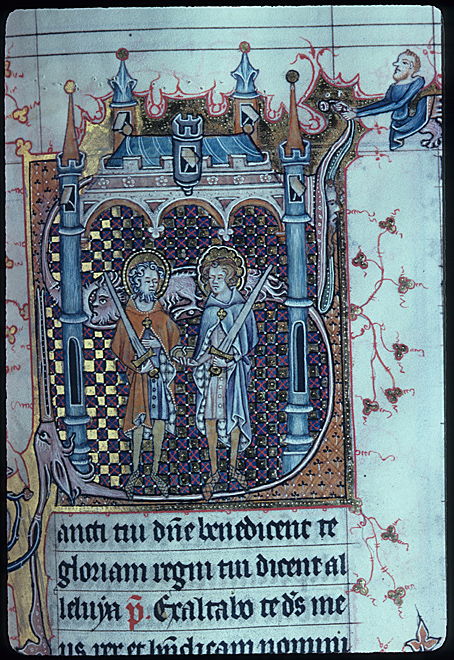 ancti tui dñe benedicent te
gloriam regni tui dicent al
leluya p̄. Exaltabo te d̄s me
us rex et bñdicam nomini